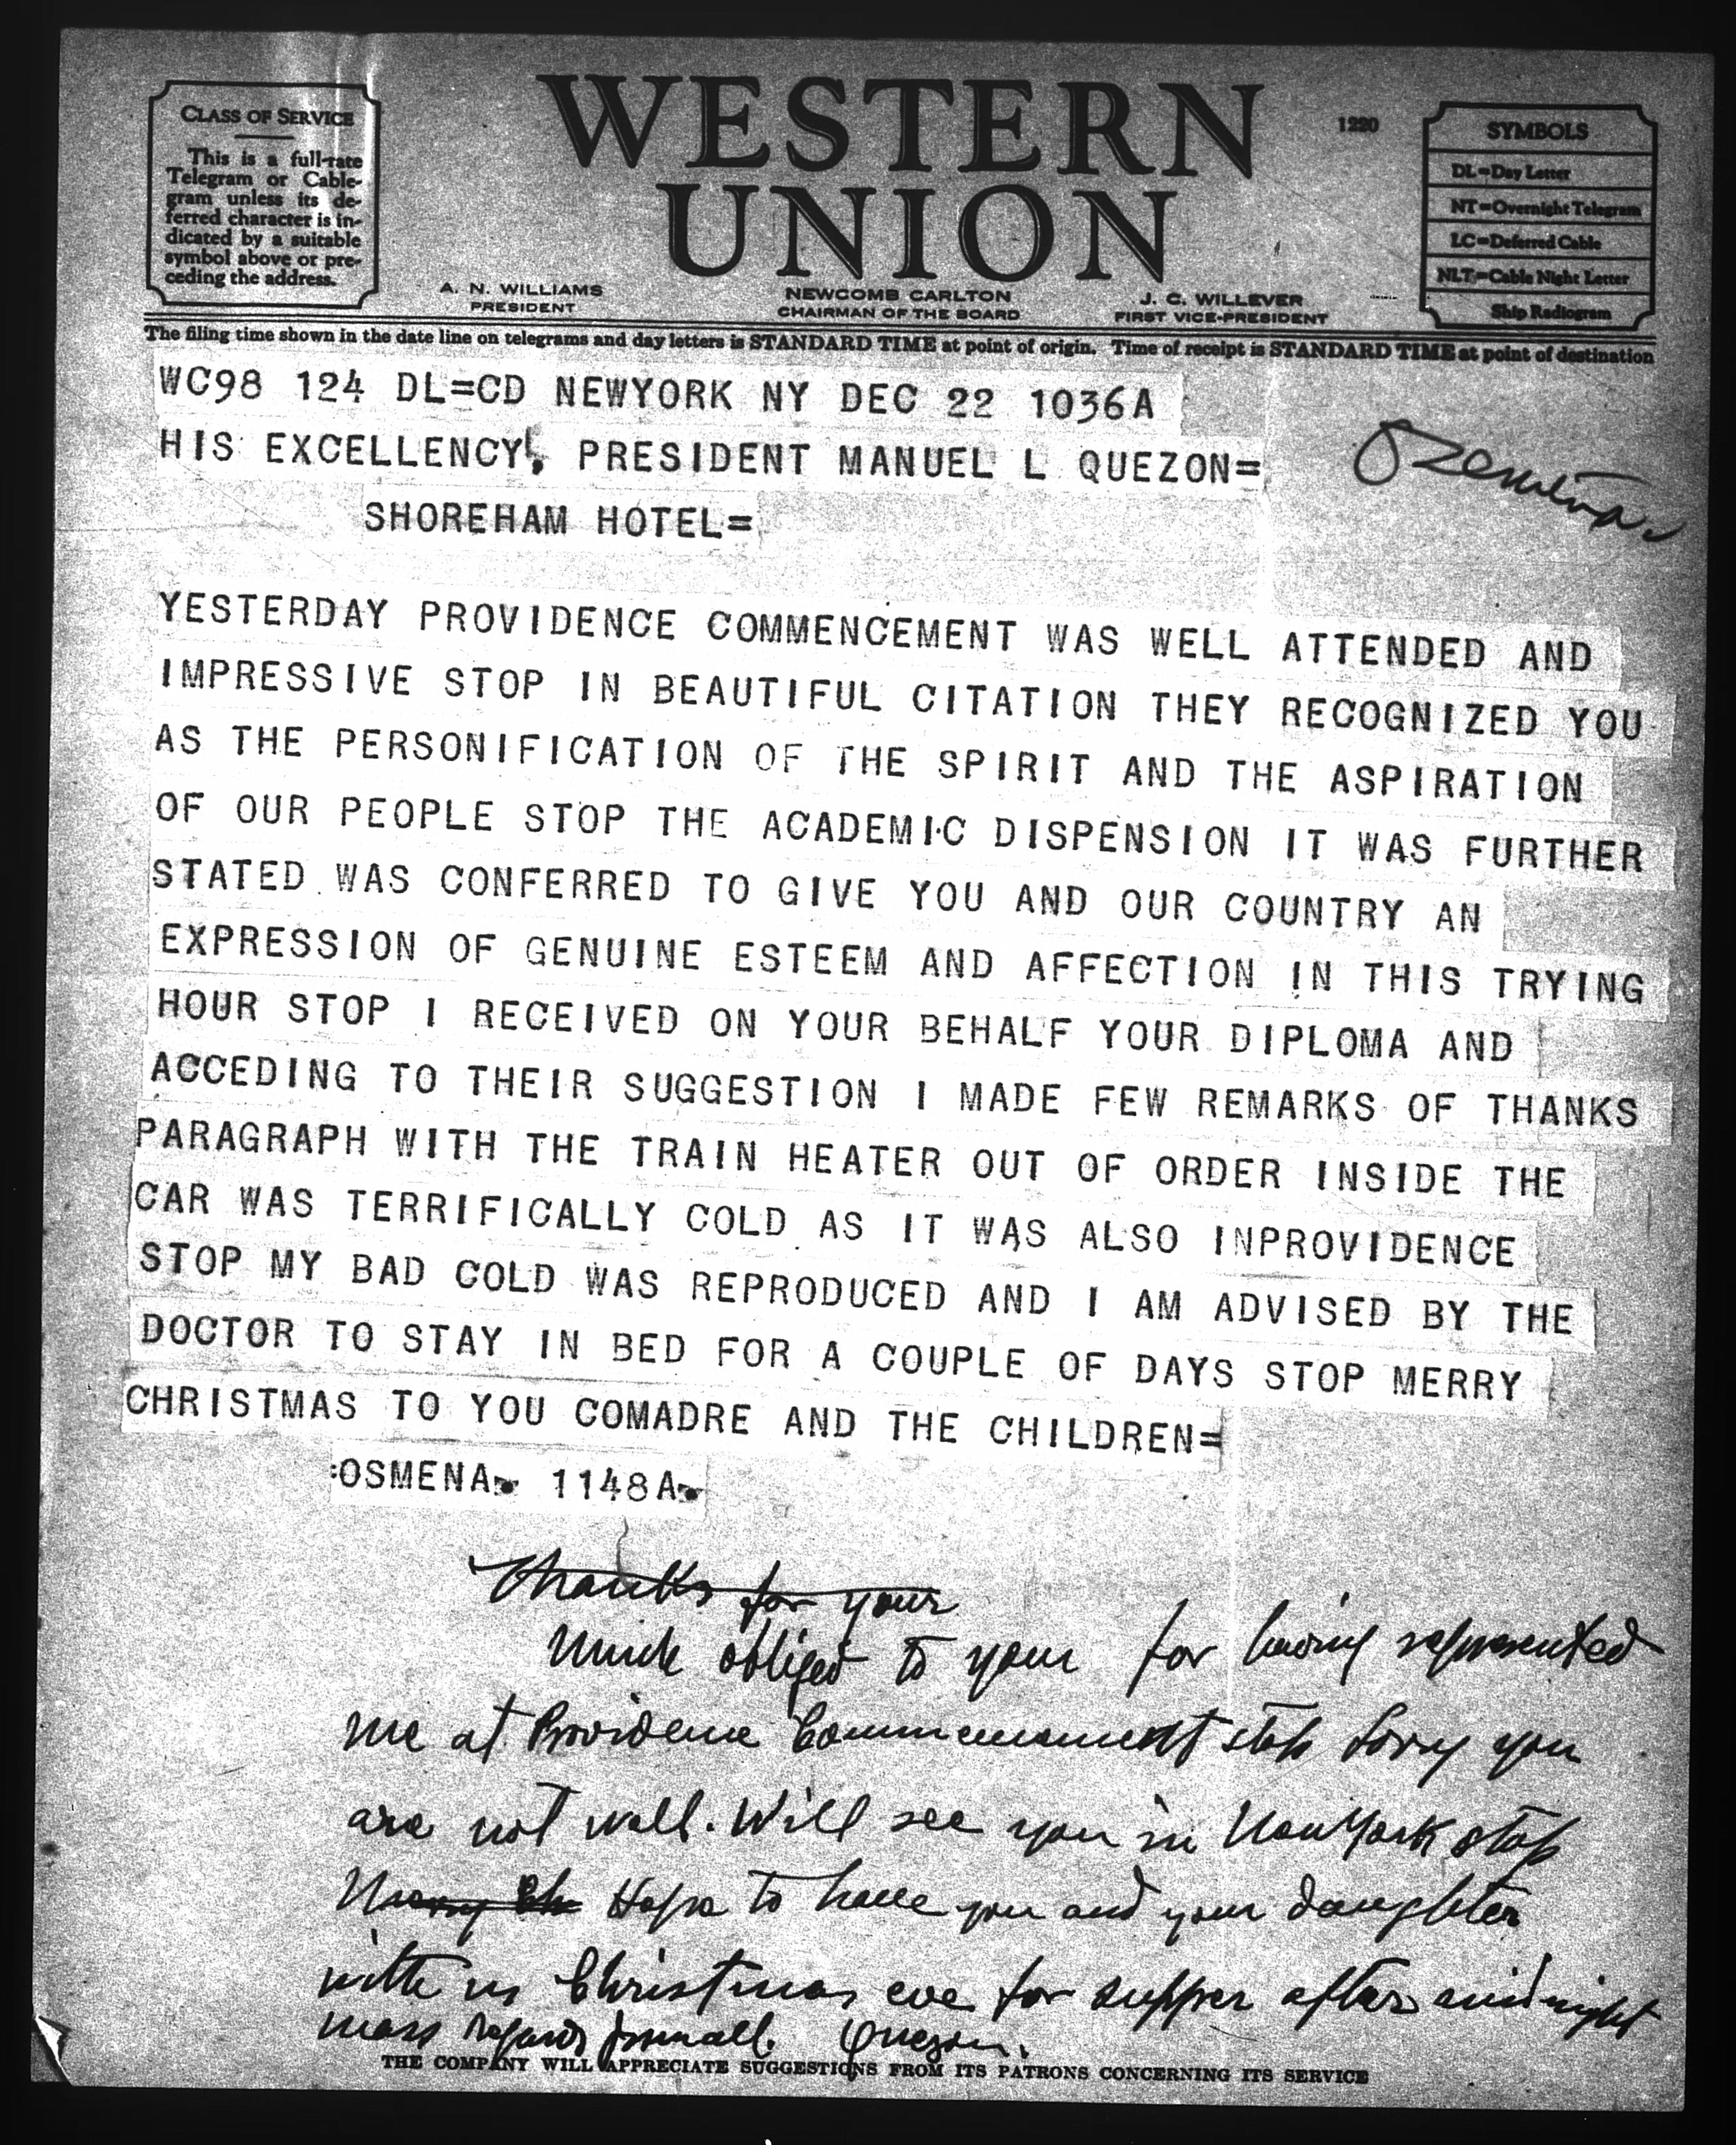 CLASS OF SERVICE
This is a full-rate
Telegram or Cable-
gram unless its de-
ferred character is in-
dicated by a suitable
symbol above or pre-
ceding the address.
WESTERN
UNION
1220
SYMBOLS
DL=Day Letter
NT=Overnight Telegram
LC=Deferred Cable
NLT=Cable Night Letter
Ship Radiogram
A. N. WILLIAMS
PRESIDENT
NEWCOMB CARLTON
CHAIRMAN OF THE BOARD
J. C. WILLEVER
FIRST VICE-PRESIDENT
The filing time shown in the date line on telegrams and day letters is STANDARD TIME at point of origin. Time of receipt is STANDARD TIME at point of destination
WC98 124 DL=CD NEWYORK NY DEC 22 1036A
HIS EXCELLENCY, PRESIDENT MANUEL L QUEZON=
SHOREHAM HOTEL=
YESTERDAY PROVIDENCE COMMENCEMENT WAS WELL ATTENDED AND
IMPRESSIVE STOP IN BEAUTIFUL CITATION THEY RECOGNIZED YOU
AS THE PERSONIFICATION OF THE SPIRIT AND THE ASPIRATION
OF OUR PEOPLE STOP THE ACADEMIC DISPENSION IT WAS FURTHER
STATED WAS CONFERRED TO GIVE YOU AND OUR COUNTRY AN
EXPRESSION OF GENUINE ESTEEM AND AFFECTION IN THIS TRYING
HOUR STOP I RECEIVED ON YOUR BEHALF YOUR DIPLOMA AND
ACCEDING TO THEIR SUGGESTION I MADE FEW REMARKS OF THANKS
PARAGRAPH WITH THE TRAIN HEATER OUT OF ORDER INSIDE THE
CAR WAS TERRIFICALLY COLD AS IT WAS ALSO INPROVIDENCE
STOP MY BAD COLD WAS REPRODUCED AND I AM ADVISED BY THE
DOCTOR TO STAY IN BED FOR A COUPLE OF DAYS STOP MERRY
CHRISTMAS TO YOU COMADRE AND THE CHILDREN=
:OSMENA. 1148A.
Thanks for your
Much obliged to your for having represented
me at Providence Commencement stop Sorry you
are not well. Will see you in New York stop
Hope to have you and your daughter
with us Christmas eve for supper after midnight
mass regards Quezon.
THE COMPANY WILL APPRECIATE SUGGESTIONS FROM ITS PATRONS CONCERNING ITS SERVICE